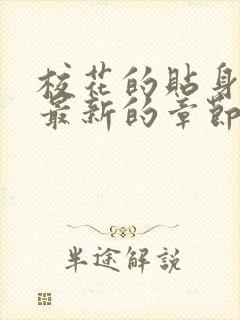 校花的貼身
最新的章節
半途解說